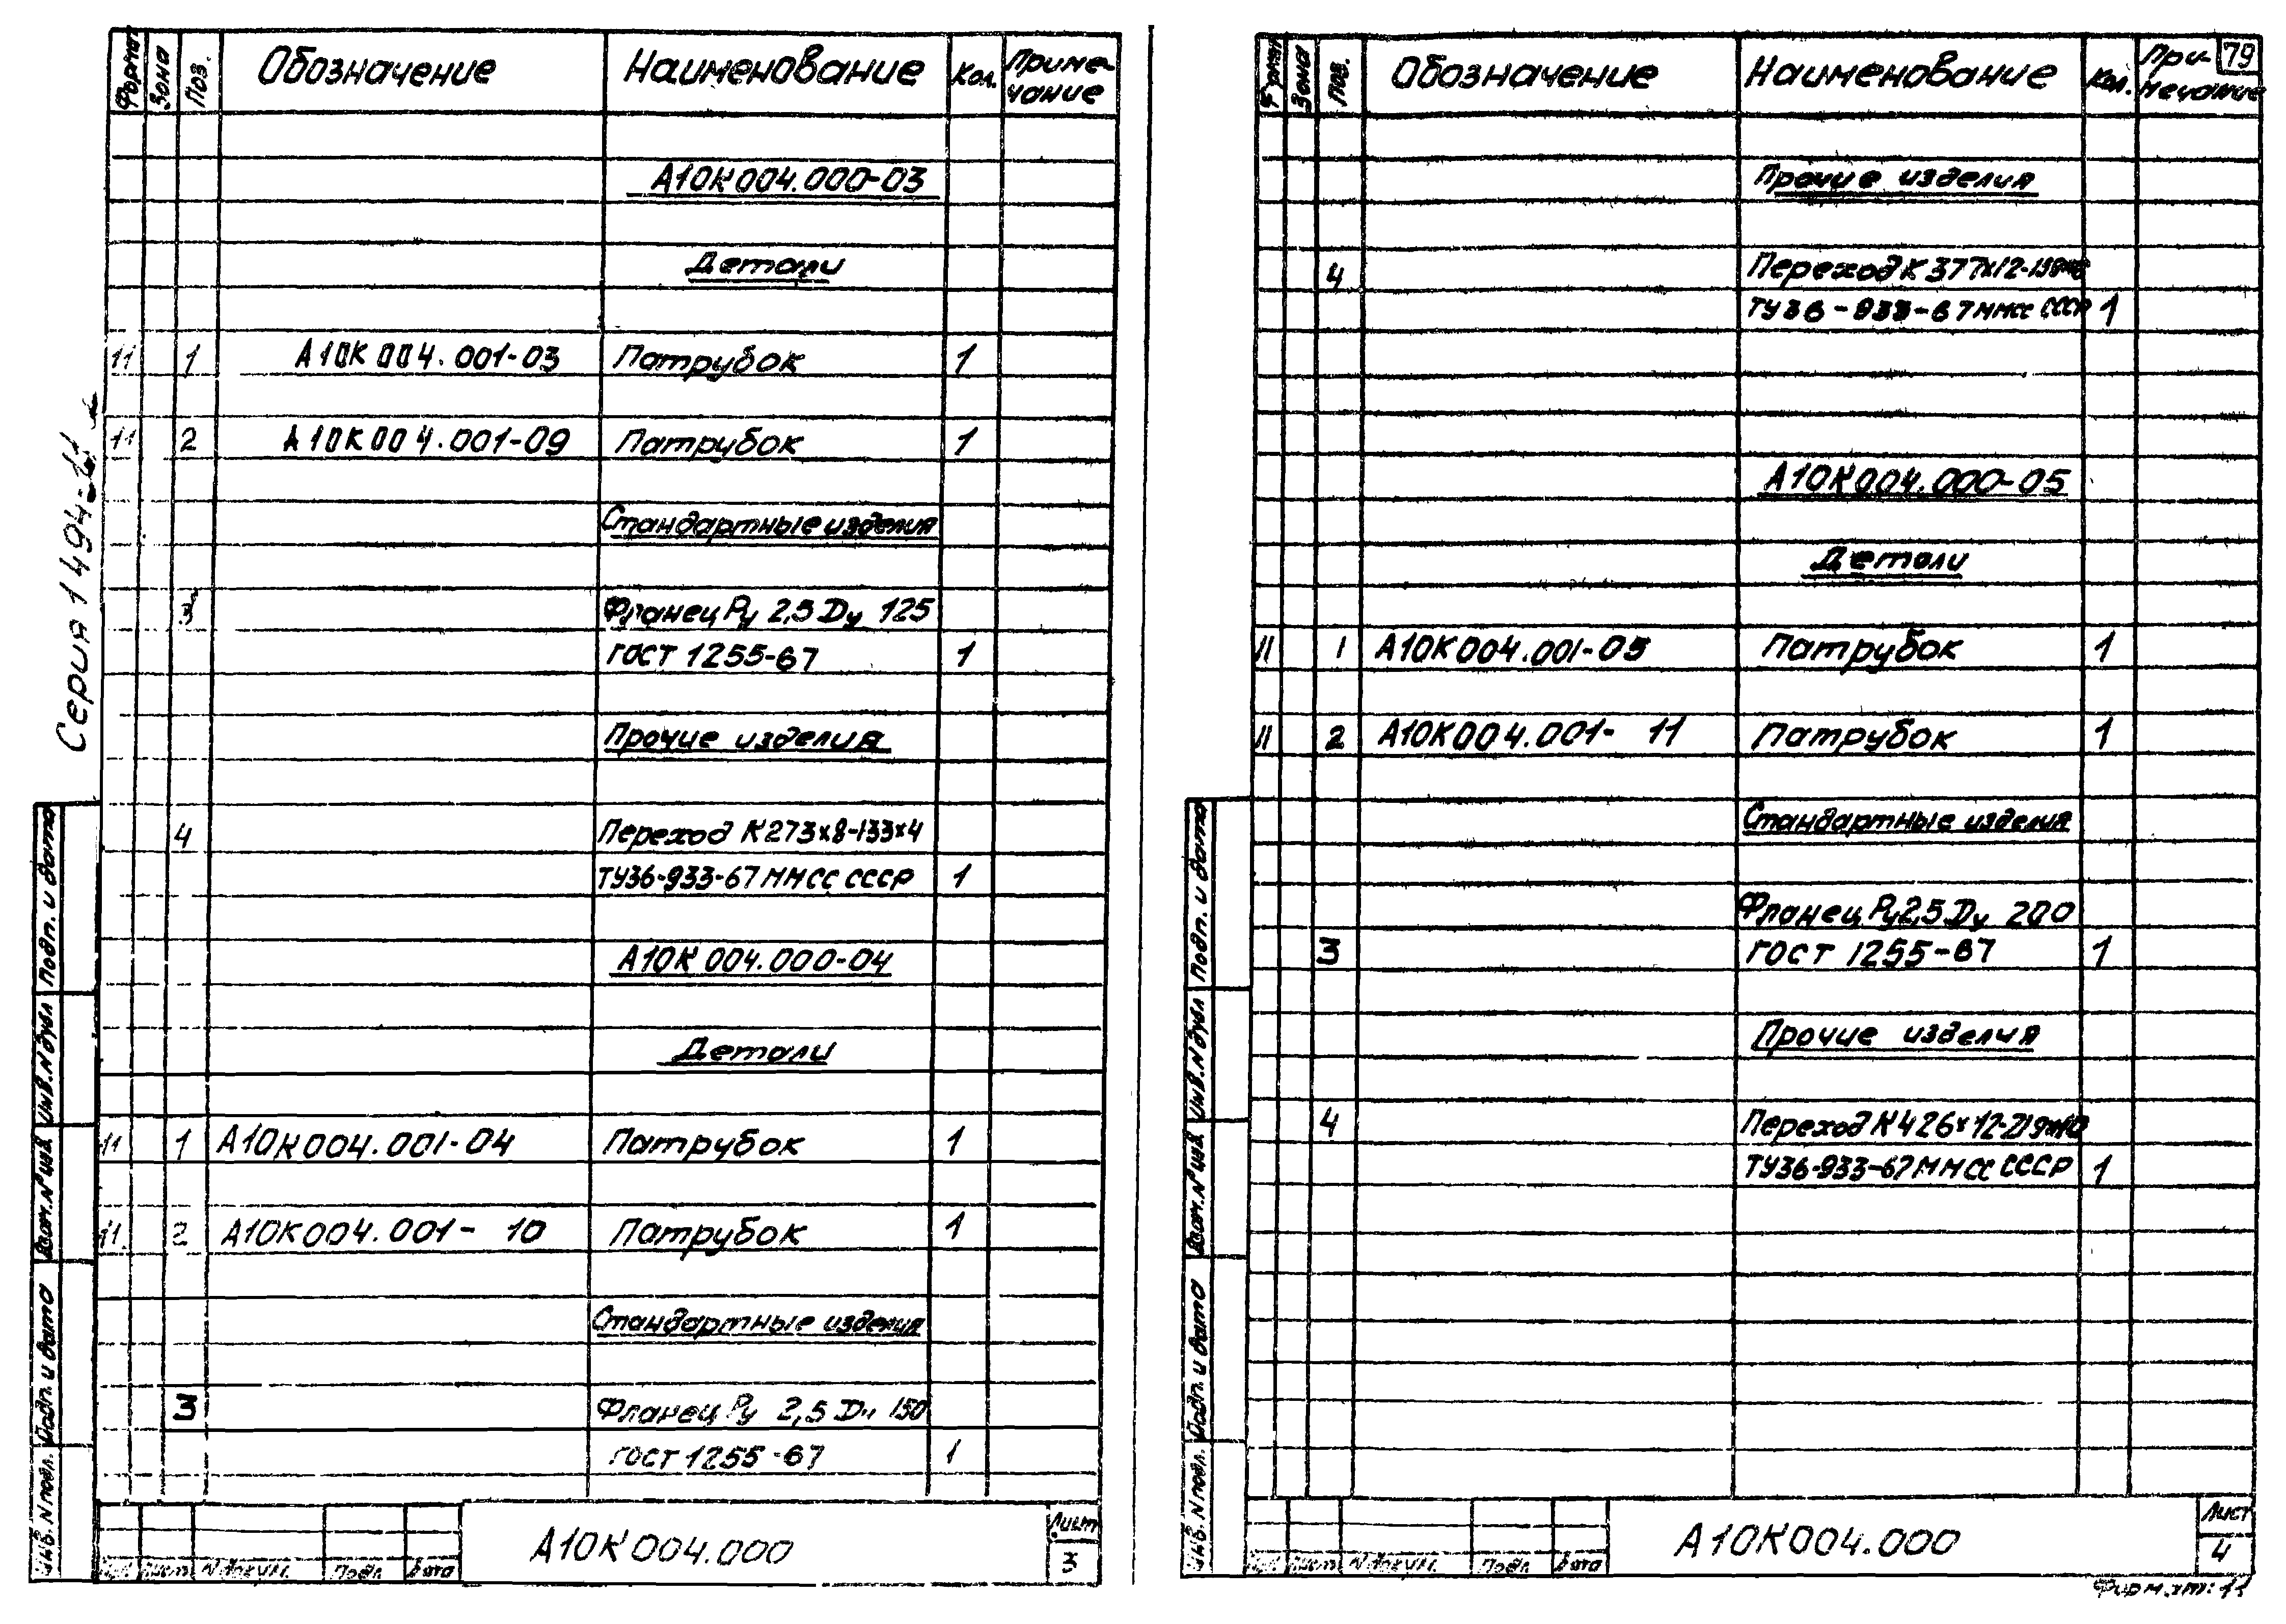 Серия 1 494-11
Формат Зона Поз. Обозначение Наименование Кол. Приме-
чание
А10К004.000-03
Детали
11 1 А10К004.001-03 Патрубок 1
11 2 А10К004.001-09 Патрубок 1
Стандартные изделия
3 Фланец Ру 2,5 Ду 125
ГОСТ 1255-67 1
Прочие изделия
4 Переход К273х8-133х4
ТУ36-933-67 ММСС СССР 1
А10К004.000-04
Детали
11 1 А10К004.001-04 Патрубок 1
11 2 А10К004.001- 10 Патрубок 1
Стандартные изделия
3 Фланец Ру 2,5 Ду 150
ГОСТ 1255-67 1
Инв. N подл. Подп. и дата Взам. N инв. Инв. N дубл Подп. и дата
Лист N докум. Подп. Дата
А10К004.000
Лист
3
79
Формат Зона Поз. Обозначение Наименование Кол. При-
мечание
Прочие изделия
4 Переход К 377х12-
ТУ36-933-67 ММСС СССР 1
А10К004.000-05
Детали
11 1 А10К004.001-05 Патрубок 1
11 2 А10К004.001- 11 Патрубок 1
Стандартные изделия
Фланец Ру2,5 Ду 200
3 ГОСТ 1255-67 1
Прочие изделия
4 Переход К426х12-219х10
ТУ36-933-67 ММСС СССР 1
Инв. N подл. Подп. и дата Взам. N инв. Инв. N дубл Подп. и дата
Лист N докум. Подп. Дата
А10К004.000
Лист
4
Формат: 11